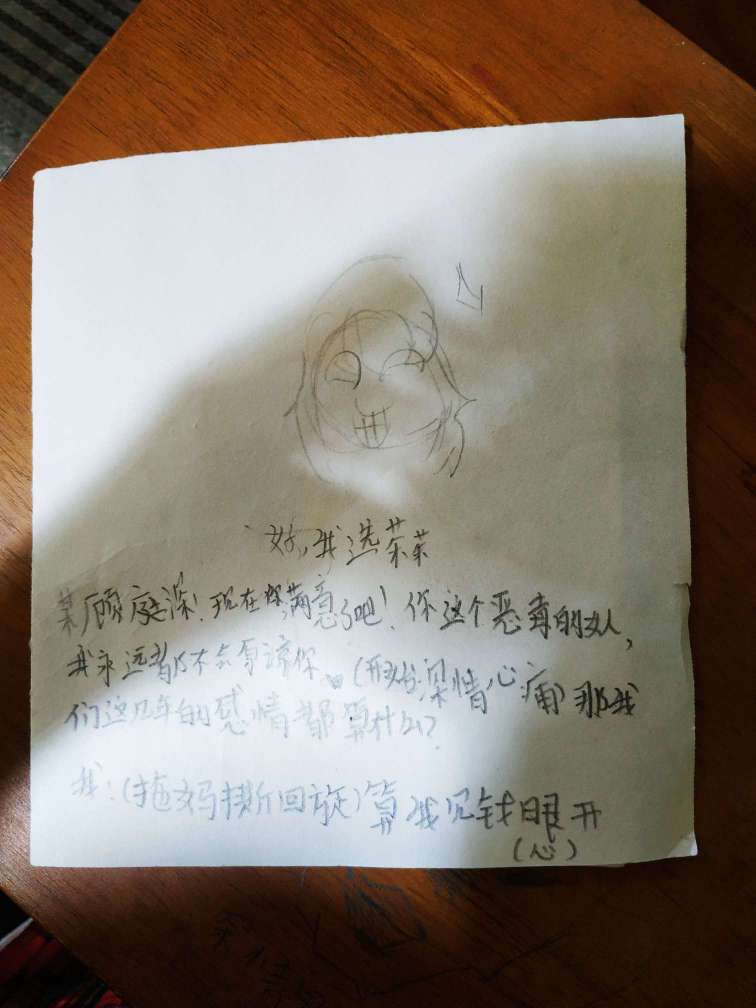 好,我选茶茶
某顾庭深!现在你满意了吧!你这个恶毒的女人,
我永远都不会原谅你。(深情心痛)那我
们这几年的感情都算什么?
我:(拖妈斯回旋)算我见钱眼开
(心)